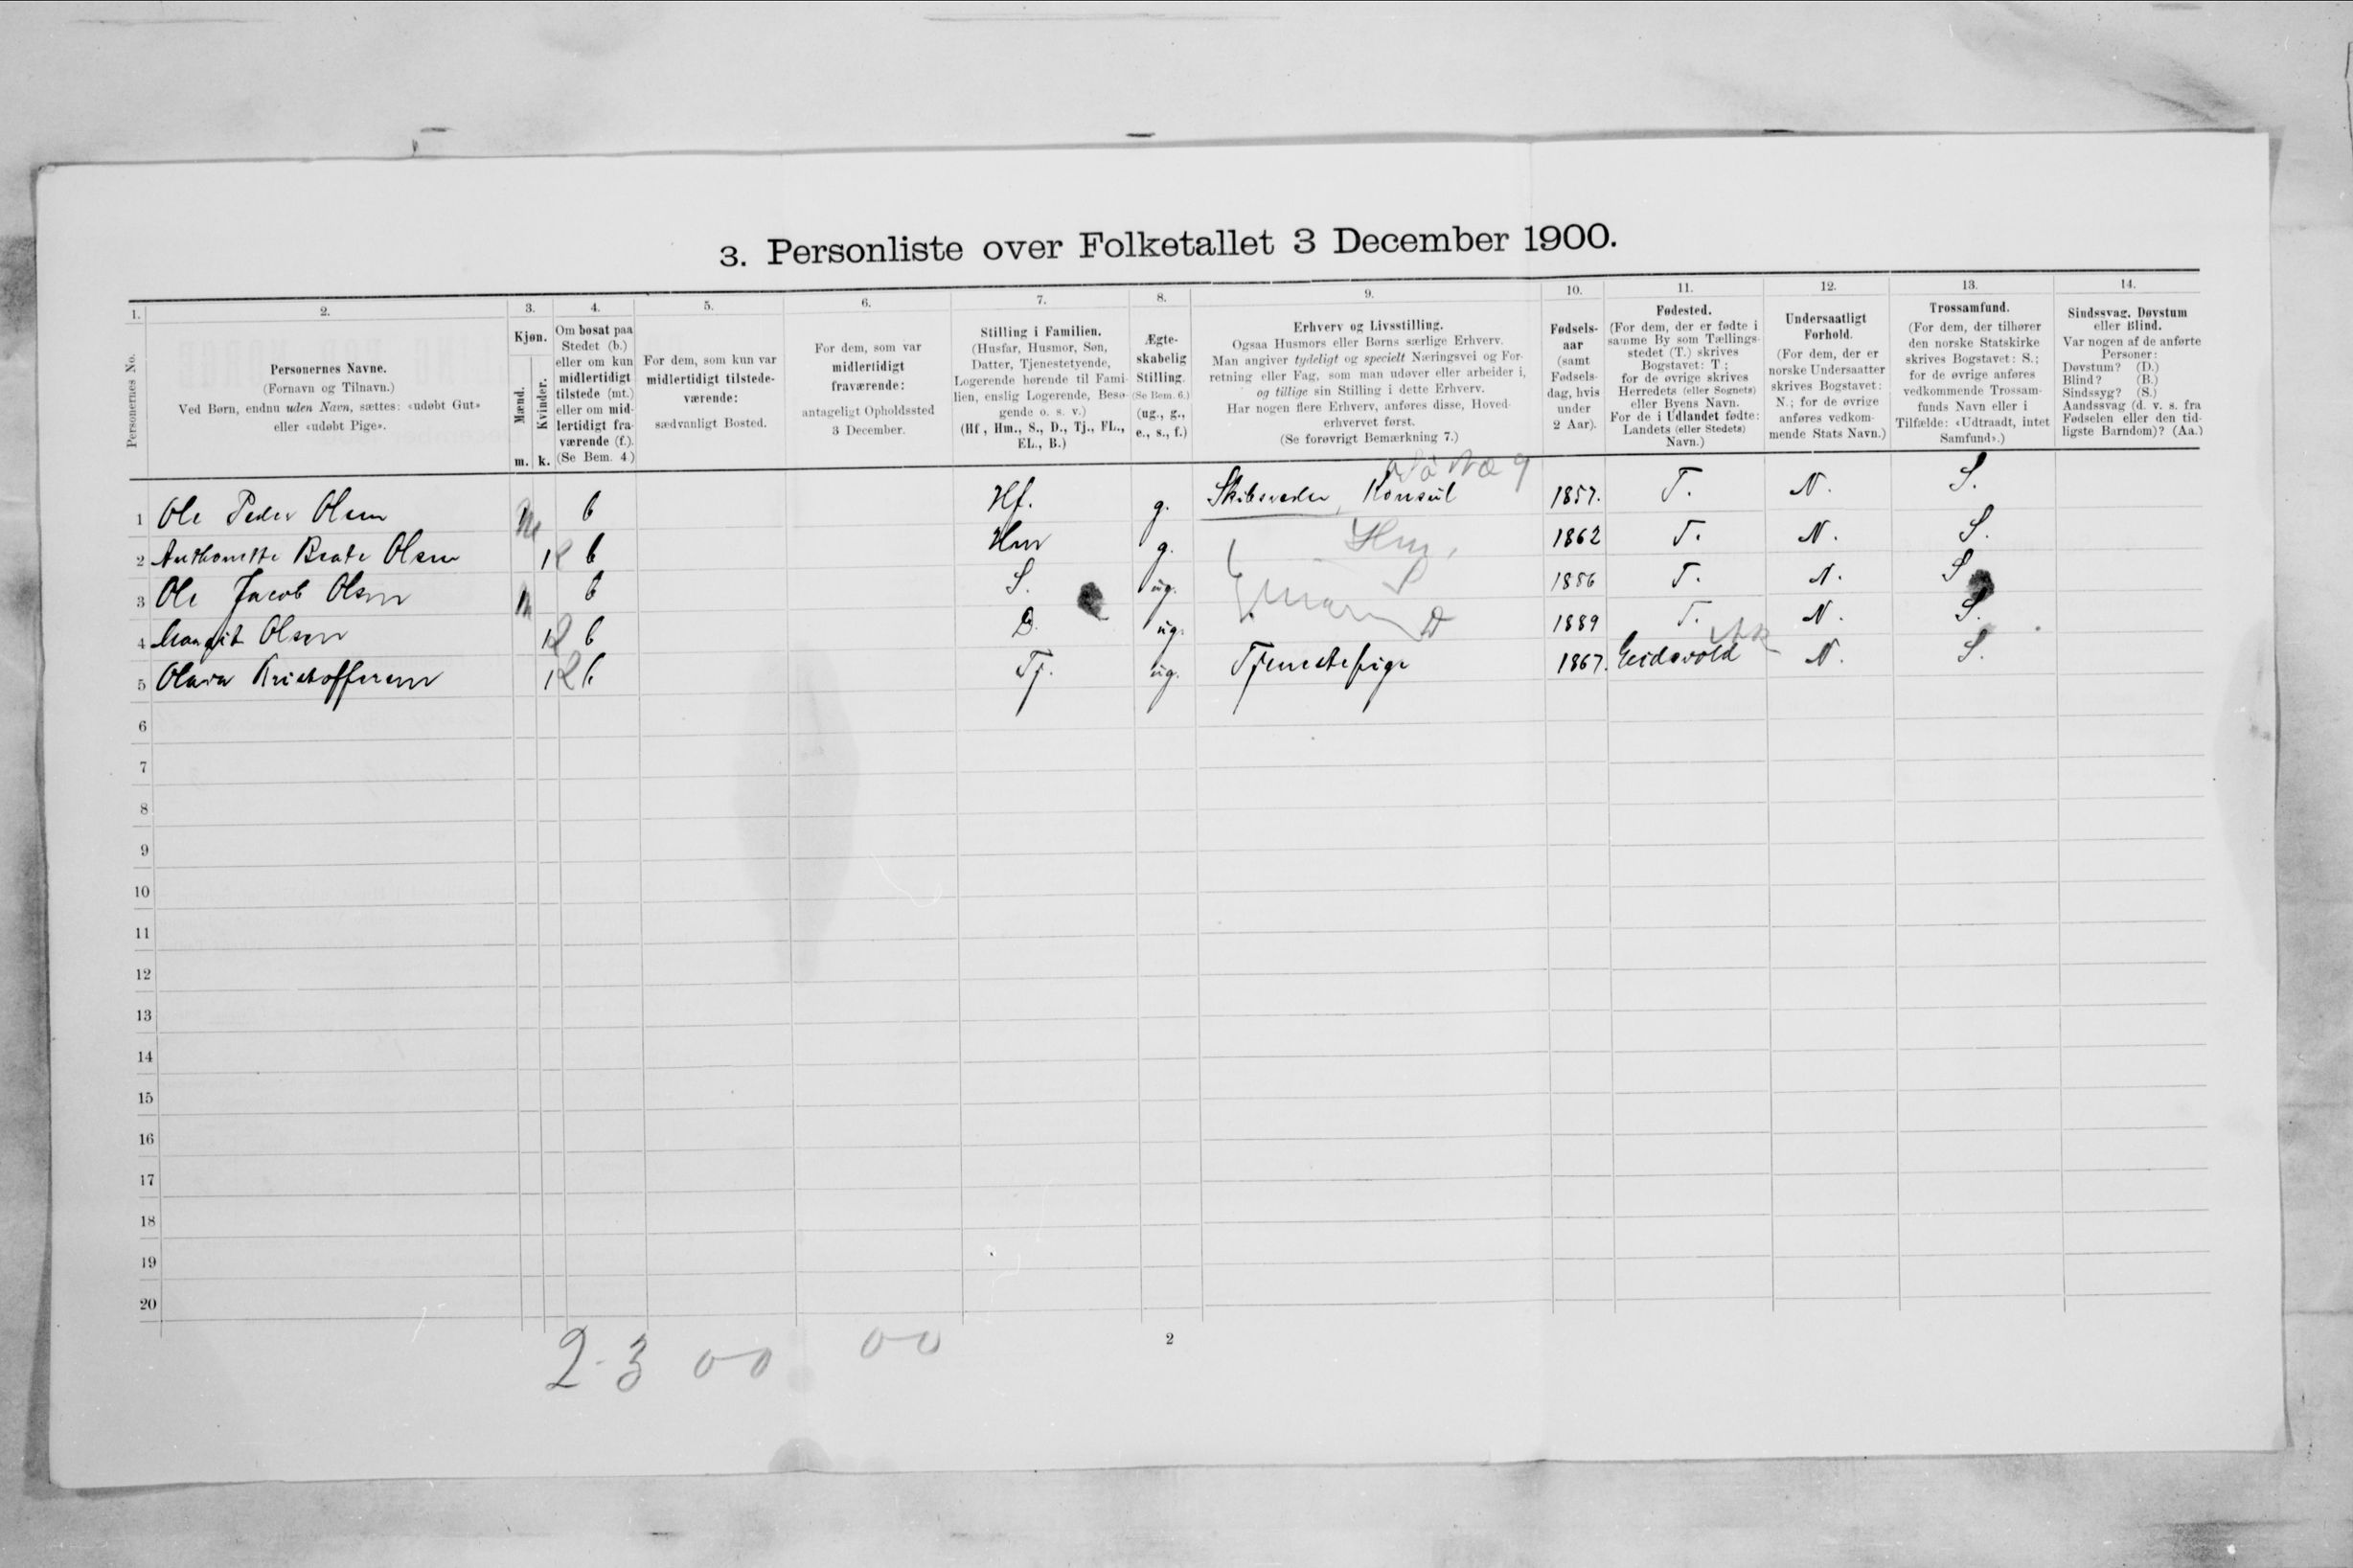 3. Personliste over Folketallet 3 December 1900.
1. 2. 3. 4. 5. 6. 7. 8. 9. 10. 11. 12. 13. 14.
Personernes No.
Personernes Navne.
(Fornavn og Tilnavn.)
Ved Børn, endnu uden Navn, sættes: «udøbt Gut»
eller «udøbt Pige».
Kjøn.
Mænd.
Kvinder.
m. k.
Om bosat paa
Stedet (b.)
eller om kun
midlertidigt
tilstede (mt.)
eller om mid-
lertidigt fra-
værende (f.).
(Se Bem. 4.)
For dem, som kun var
midlertidigt tilstede-
værende:
sædvanligt Bosted.
For dem, som var
midlertidigt
fraværende:
antageligt Opholdssted
3 December.
Stilling i Familien.
(Husfar, Husmor, Søn,
Datter, Tjenestetyende,
Logerende hørende til Fami-
lien, enslig Logerende, Besø-
gende o. s. v.)
(Hf., Hm., S., D., Tj., FL.,
EL., B.)
Ægte-
skabelig
Stilling.
(Se Bem. 6.)
(ug., g.,
e., s., f.)
Erhverv og Livsstilling.
Ogsaa Husmors eller Børns særlige Erhverv.
Man angiver tydeligt og specielt Næringsvei og For-
retning eller Fag, som man udøver eller arbeider i,
og tillige sin Stilling i dette Erhverv.
Har nogen flere Erhverv, anføres disse, Hoved-
erhvervet først.
(Se forøvrigt Bemærkning 7.)
Fødsels-
aar
(samt
Fødsels-
dag, hvis
under
2 Aar).
Fødested.
(For dem, der er fødte i
samme By som Tællings-
stedet (T.) skrives
Bogstavet: T.;
for de øvrige skrives
Herredets (eller Sognets)
eller Byens Navn.
For de i Udlandet fødte:
Landets (eller Stedets)
Navn.)
Undersaatligt
Forhold.
(For dem, der er
norske Undersaatter
skrives Bogstavet:
N.; for de øvrige
anføres vedkom-
mende Stats Navn.)
Trossamfund.
(For dem, der tilhører
den norske Statskirke
skrives Bogstavet: S.;
for de øvrige anføres
vedkommende Trossam-
funds Navn eller i
Tilfælde: «Udtraadt, intet
Samfund».)
Sindssvag, Døvstum
eller Blind.
Var nogen af de anførte
Personer:
Døvstum? (D.)
Blind? (B.)
Sindssyg? (S.)
Aandssvag (d. v. s. fra
Fødselen eller den tid-
ligste Barndom)? (Aa.)
1 Ole Peder Olsen m b Hf. g. Skibsreder, Konsul 1857. T. N. S.
2 Anthonette Beate Olsen 1 k b Hm g. Hm. 1862 T. N. S.
3 Ole Jacob Olsen m b S. ug. S 1886 T. N. S
4 Margit Olsen 1 k b D. ug. D 1889 T. N. S.
5 Olava Kristoffersen 1 k b Tj. ug. Tjenestepige 1867. Eidsvold Ak N. S.
6
7
8
9
10
11
12
13
14
15
16
17
18
19
20
2-3 00 00
2